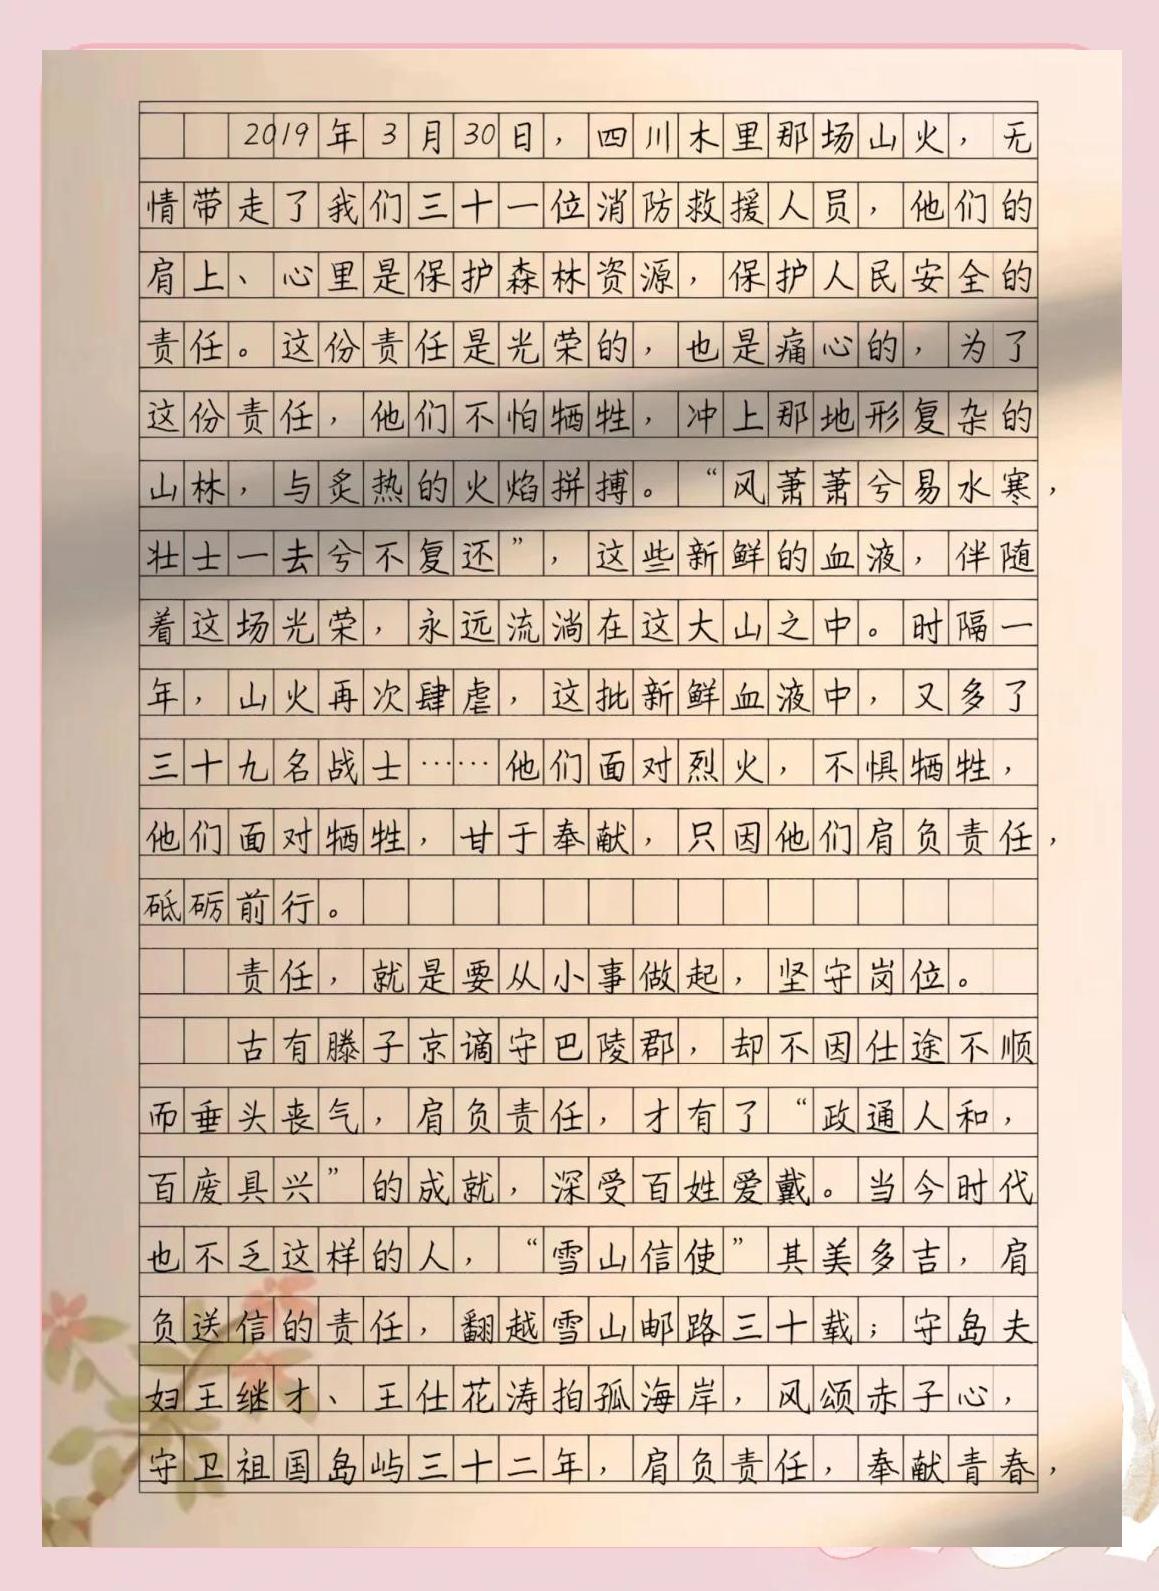 2019年3月30日，四川木里那场山火，无
情带走了我们三十一位消防救援人员，他们的
肩上、心里是保护森林资源，保护人民安全的
责任。这份责任是光荣的，也是痛心的，为了
这份责任，他们不怕牺牲，冲上那地形复杂的
山林，与炙热的火焰拼搏。“风萧萧兮易水寒，
壮士一去兮不复还”，这些新鲜的血液，伴随
着这场光荣，永远流淌在这大山之中。时隔一
年，山火再次肆虐，这批新鲜血液中，又多了
三十九名战士……他们面对烈火，不惧牺牲，
他们面对牺牲，甘于奉献，只因他们肩负责任，
砥砺前行。
责任，就是要从小事做起，坚守岗位。
古有滕子京谪守巴陵郡，却不因仕途不顺
而垂头丧气，肩负责任，才有了“政通人和，
百废具兴”的成就，深受百姓爱戴。当今时代
也不乏这样的人，“雪山信使”其美多吉，肩
负送信的责任，翻越雪山邮路三十载；守岛夫
妇王继才、王仕花涛拍孤海岸，风颂赤子心，
守卫祖国岛屿三十二年，肩负责任，奉献青春，